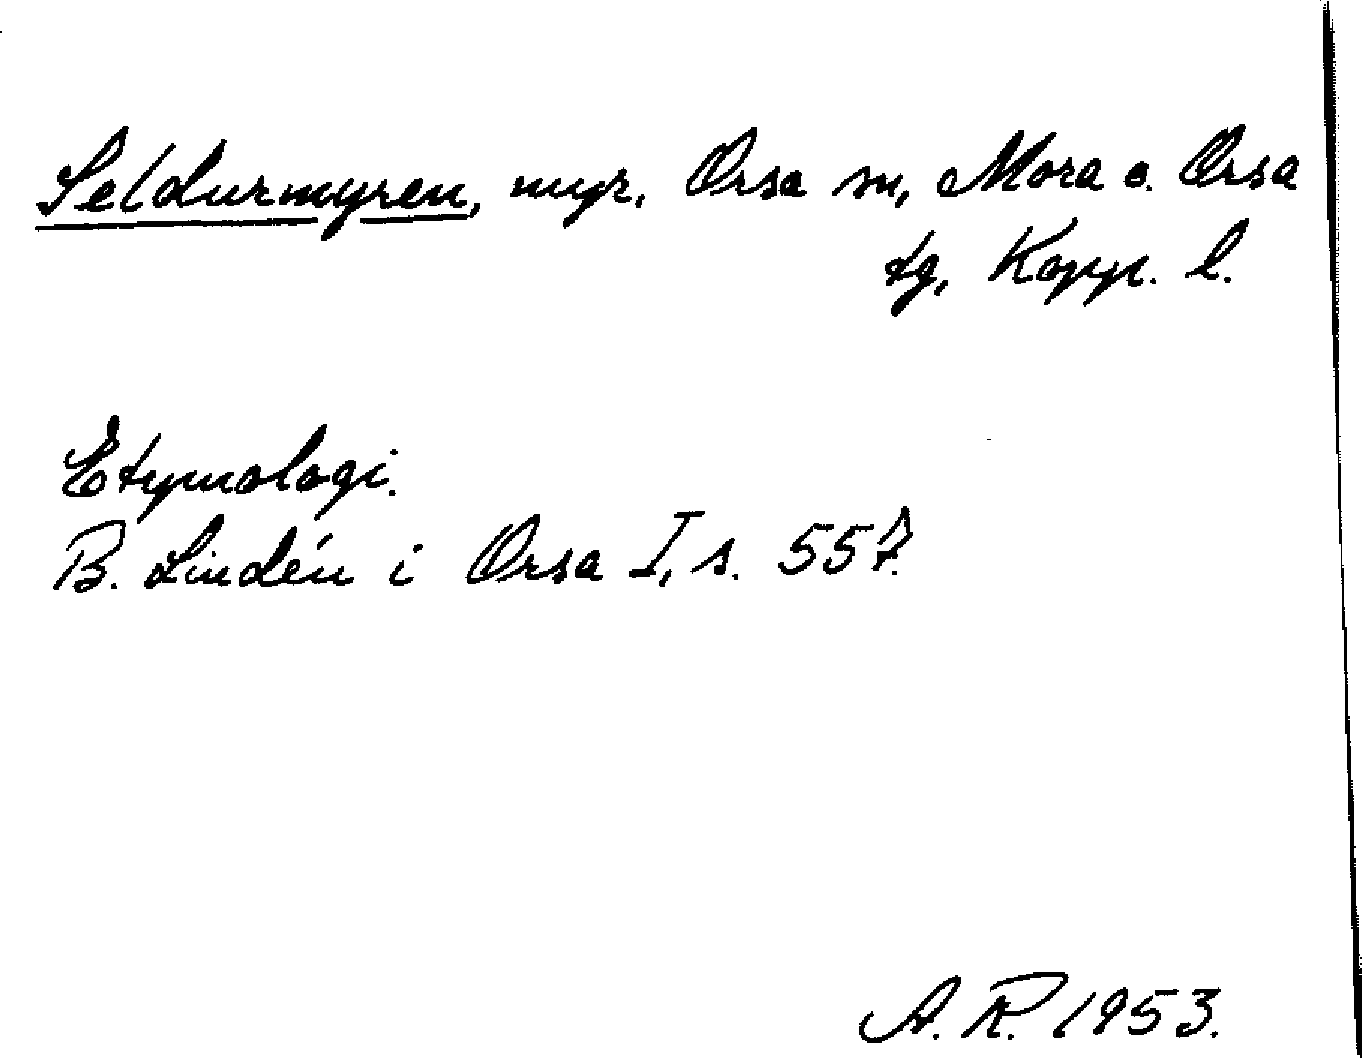 Seldurmyren, myr, Orsa sn, Mora o. Orsa
tg, Kopp. l.
Etymologi.
B. Lindén i Orsa I, s. 557.
A. R. 1953.